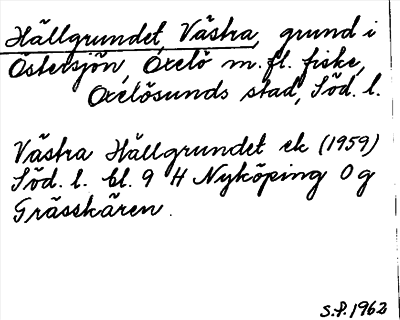 Hällgrundet, Västra, grund i
Östersjön, Oxelö m.fl. fiske,
Oxelösunds stad, Söd. l.
Västra Hällgrundet ek (1959)
Söd. l. bl. 9 H Nyköping 0 g
Grässkären.
S.P. 1962